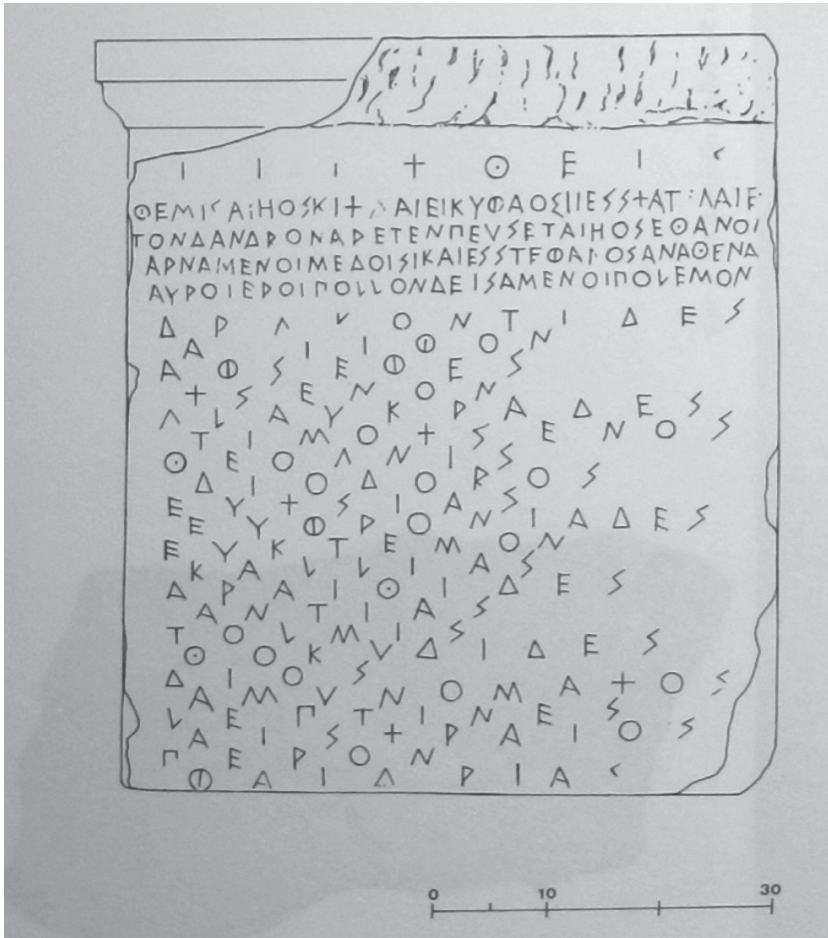 Ι Ι Ι + Θ Ε Ι Σ
ΘΕΜΙΣΑΙΗΟΣΚΙ+ΛΑΙΕΙΚΥΦΑΟΣΙΙΕΣΣ+ΑΤ ΛΑΙΕ
ΤΟΝΔΑΝΔΡΟΝΑΡΕΤΕΝΠΕΥΣΕΤΑΙΗΟΣΕΘΑΝΟΙ
ΑΡΝΑΜΕΝΟΙΜΕΔΟΙΣΙΚΑΙΕΣΣΤΕΦΑΙΟΣΑΝΑΘΕΝΑ
ΑΥΡΟΙΕΡΟΙΠΟΛΛΟΝΔΕΙΣΑΜΕΝΟΙΠΟΛΕΜΟΝ
ΔΡΑΚΟΝΤΙΔΕΣ
ΑΙΙΦΟΝ
ΑΦΣΕΦΕΣ
+ΣΕΝΟΝ
ΓΛΑΥΚΡΑΔΕΣ
ΤΙΜΟ+ΣΕΝΟΣ
ΘΕΟΓΝΙΣ
ΔΙΟΔΟΡΟΣ
ΕΥ+ΣΙΑΣ
ΕΥΦΡΟΝΙΑΔΕΣ
ΕΥΚΤΕΜΟΝ
ΚΑΛΛΙΑΣ
ΑΡΑΙΘΙΔΕΣ
ΑΝΤΙΑΣ
ΤΟΛΜΙΣ
ΘΟΚΥΔΙΔΕΣ
ΔΙΟΣ
ΑΜΥΝΟΜΑ+ΟΣ
ΛΕΠΤΙΝΕΣ
ΑΙΣ+ΡΑΙΟΣ
ΠΕΡΟΝ
ΦΑΙΔΡΙΑΣ
0 10 30